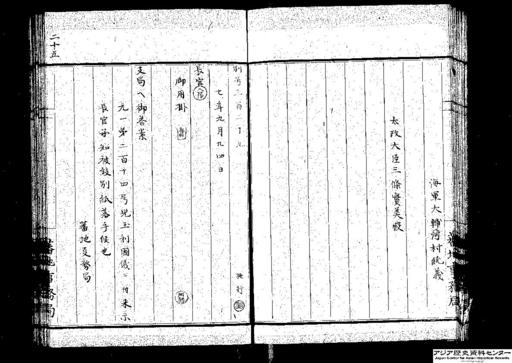 海軍大輔河村純義
太政大臣三條實美殿
七年九月廿四日
長官
御用掛
支局へ御答案
元一第二百十四号児玉利國儀ニ付来示
長官承知被致別紙落手候也
蕃地事務局
二十五
蕃地事務局
蕃地事務局
アジア歴史資料センター
Japan Center for Asian Historical Records